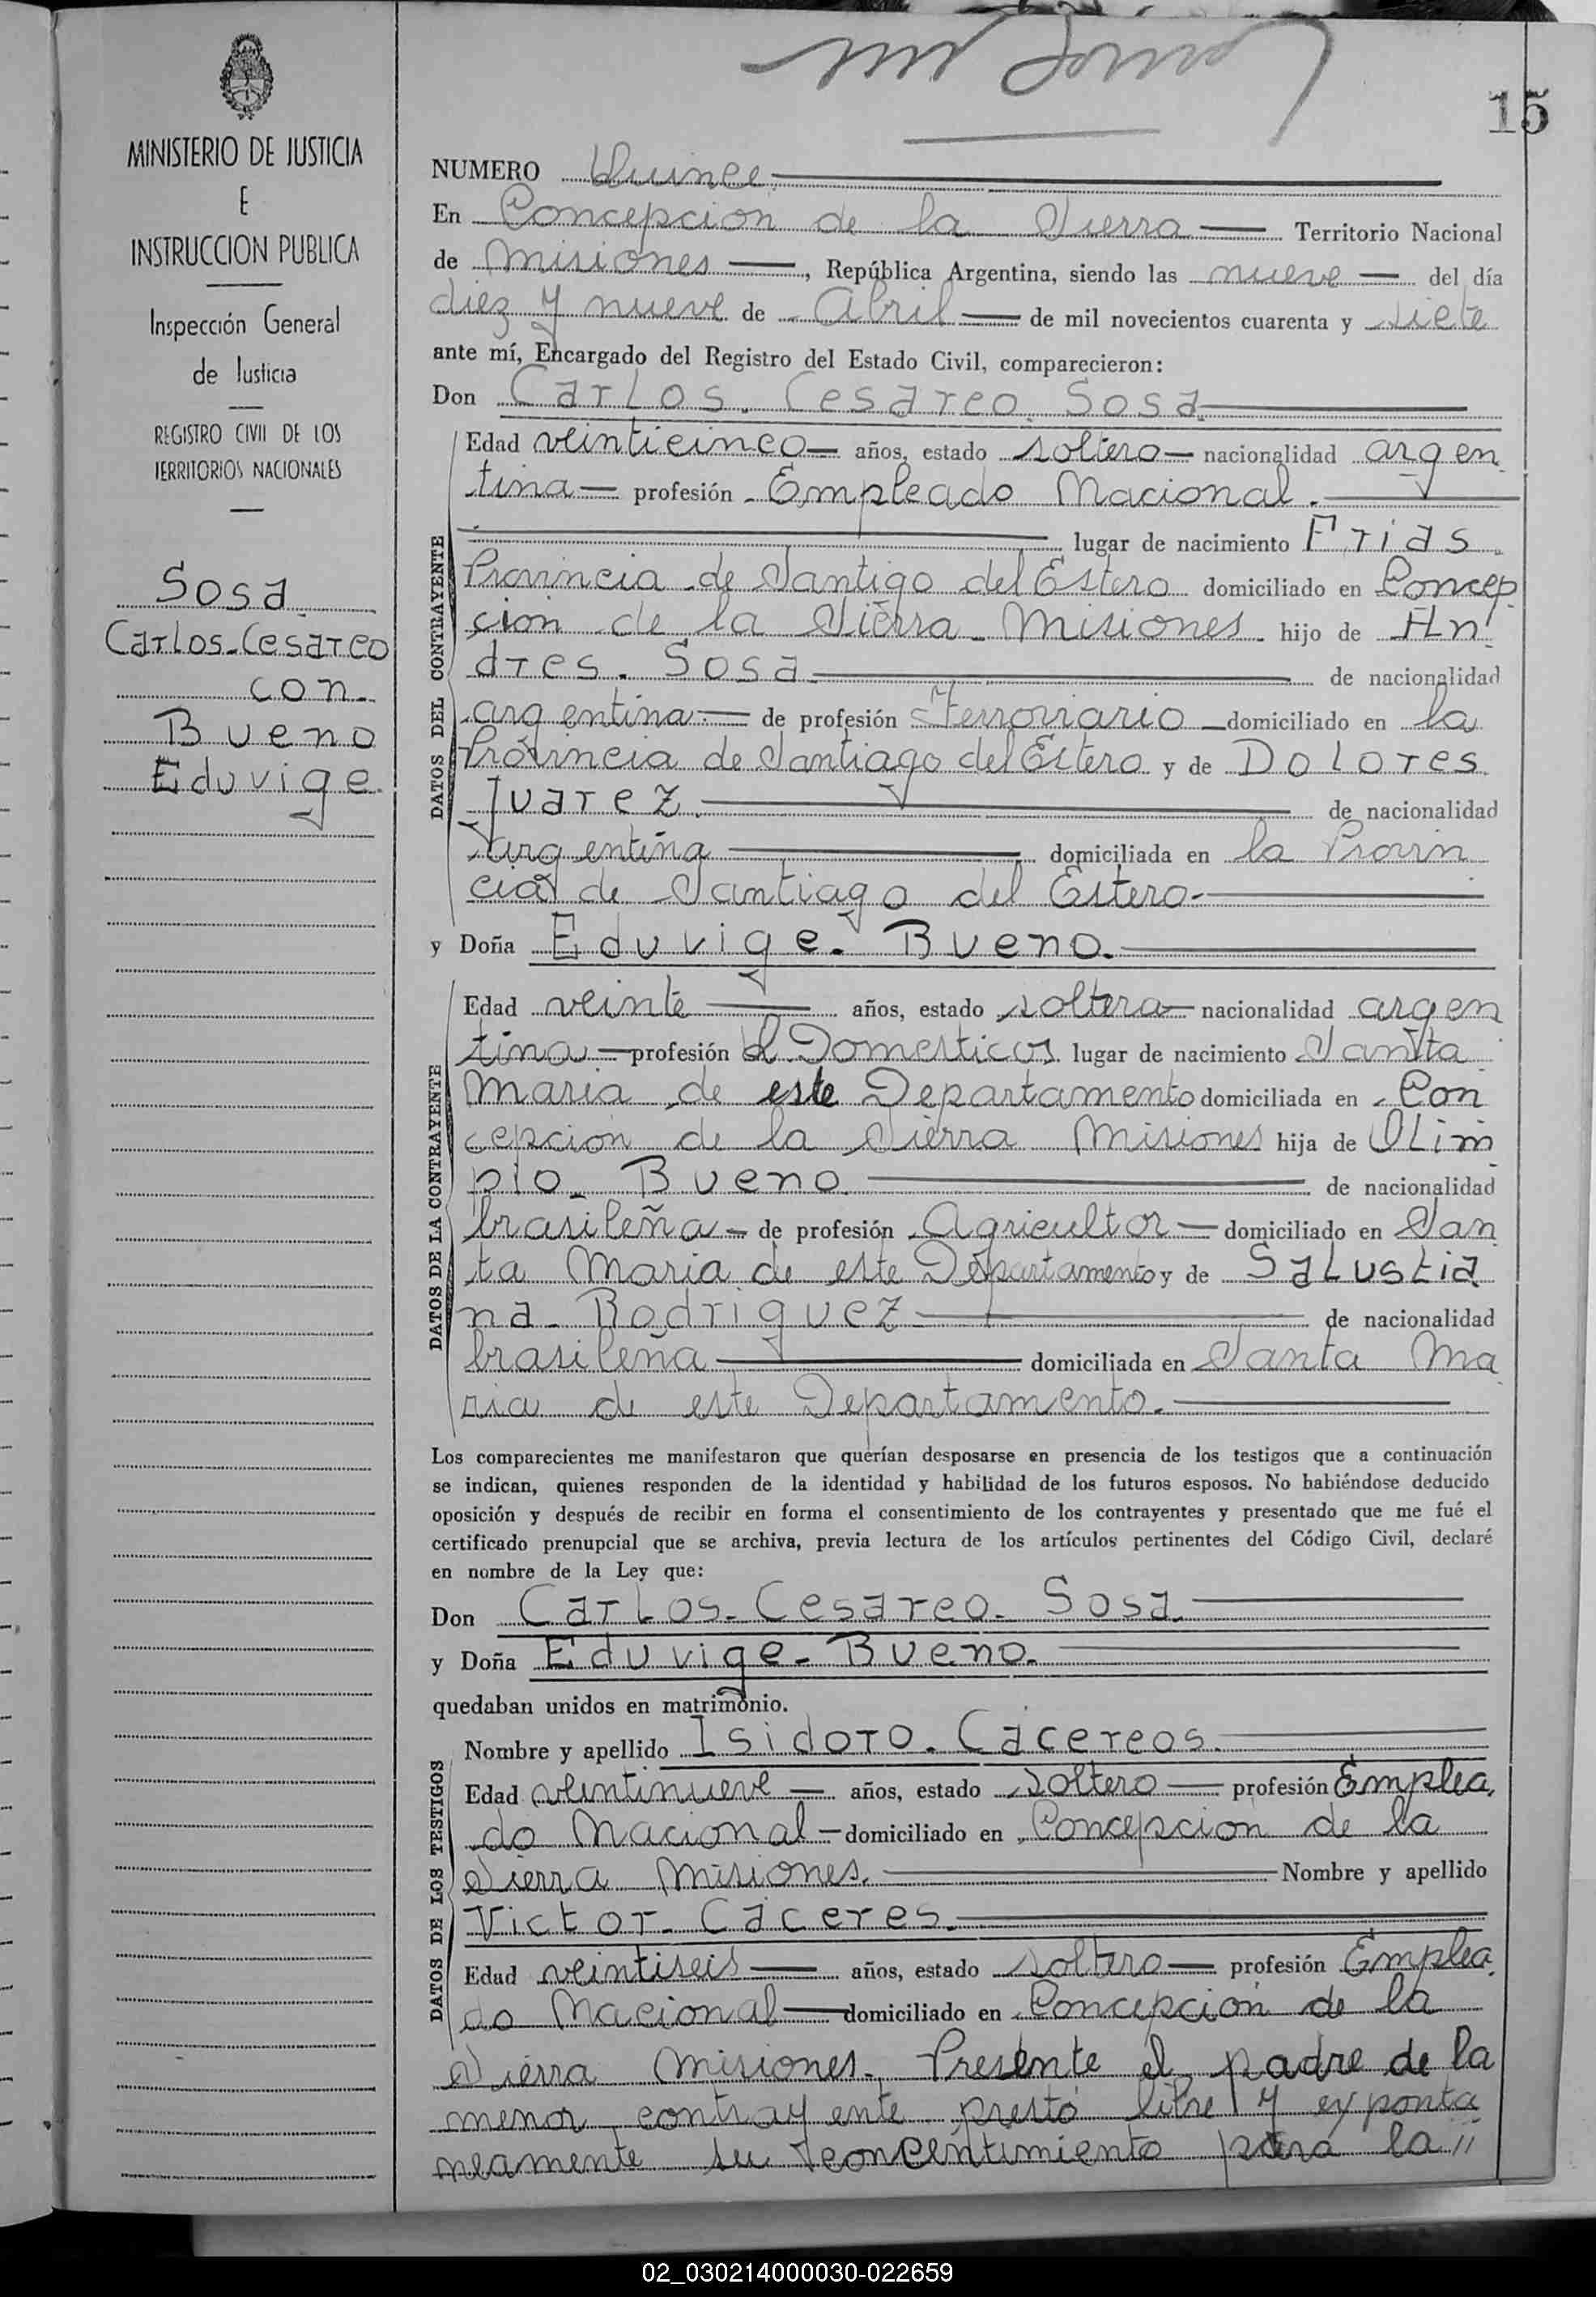 15
MINISTERIO DE JUSTICIA
E
INSTRUCCION PUBLICA
Inspección General
de Justicia
REGISTRO CIVIL DE LOS
TERRITORIOS NACIONALES
Sosa
Carlos-Cesareo
con-
Bueno
Eduvige.
NUMERO Quince
En Concepcion de la Sierra Territorio Nacional
de Misiones, República Argentina, siendo las nueve del día
diez y nueve de Abril de mil novecientos cuarenta y siete
ante mí, Encargado del Registro del Estado Civil, comparecieron:
Don Carlos. Cesareo. Sosa.
DATOS DEL CONTRAYENTE
Edad veinticinco años, estado soltero nacionalidad argen
tina profesión Empleado Nacional.
lugar de nacimiento Frias.
Provincia de Santigo del Estero domiciliado en Concep
cion de la Sierra Misiones hijo de An
dres. Sosa. de nacionalidad
argentina de profesión Ferroviario domiciliado en la
Provincia de Santiago del Estero y de Dolores
Juarez. de nacionalidad
argentina domiciliada en la Provin
cia de Santiago del Estero.
y Doña Eduvige. Bueno.
DATOS DE LA CONTRAYENTE
Edad veinte años, estado soltera nacionalidad argen
tina profesión Domesticos lugar de nacimiento Santa
Maria de este Departamento domiciliada en Con
cepcion de la Sierra Misiones hija de Olim
pio. Bueno. de nacionalidad
brasileña de profesión Agricultor domiciliado en San
ta Maria de este Departamento y de Salustia
na. Rodriguez de nacionalidad
brasileña domiciliada en Santa Ma
ria de este Departamento.
Los comparecientes me manifestaron que querían desposarse en presencia de los testigos que a continuación
se indican, quienes responden de la identidad y habilidad de los futuros esposos. No habiéndose deducido
oposición y después de recibir en forma el consentimiento de los contrayentes y presentado que me fué el
certificado prenupcial que se archiva, previa lectura de los artículos pertinentes del Código Civil, declaré
en nombre de la Ley que:
Don Carlos. Cesareo. Sosa.
y Doña Eduvige. Bueno.
quedaban unidos en matrimonio.
DATOS DE LOS TESTIGOS
Nombre y apellido Isidoro. Cacereos.
Edad veintinueve años, estado soltero profesión Emplea
do Nacional domiciliado en Concepcion de la
Sierra Misiones. Nombre y apellido
Victor. Caceres.
Edad veintiseis años, estado soltero profesión Emplea
do Nacional domiciliado en Concepción de la
Sierra Misiones. Presente el padre de la
menor contrayente prestó libre y exponta
neamente su concentimiento para la //
02_030214000030-022659